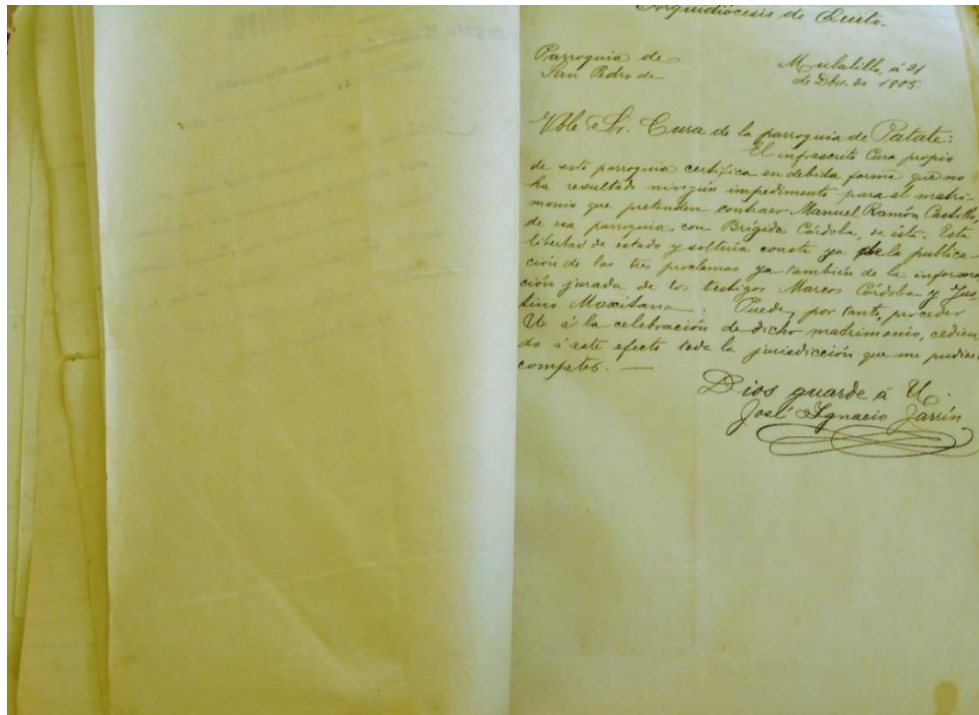 Arquidiócesis de Quito.
Parroquia de
San Pedro de
Mulalillo, á 21
de Dbre. de 1905.
Vble Sr. Cura de la parroquia de Patate:
El infrascrito Cura propio
de esta parroquia certifica en debida forma que no
ha resultado ningún impedimento para el matri-
monio que pretenden contraer Manuel Ramón Castillo,
de esa parroquia, con Brígida Córdoba, de ésta. Esta
libertad de estado y soltería consta ya de la publica-
ción de las tres proclamas ya también de la informa
ción jurada de los testigos Marcos Córdoba y Jus
tino . Puede, por tanto, proceder
U á la celebración de dicho matrimonio, cedien
do á este efecto toda la jurisdicción que me pudiera
competer. —
Dios guarde á U.
José Ignacio Jarrín